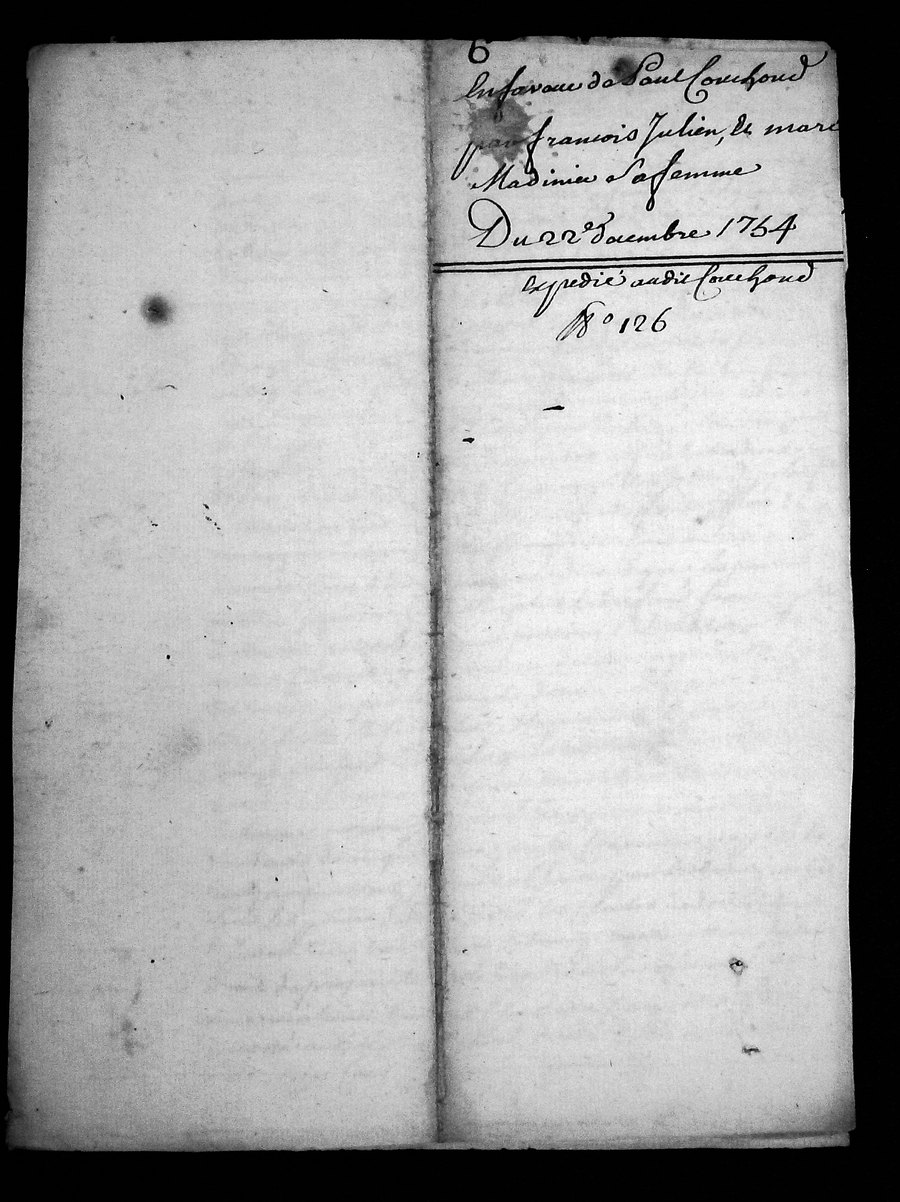 6
En faveur de Paul Couchoud
par francois Julien, & marie
Madinier Sa femme
Du 22e decembre 1754
expedié audit Couchoud
No 126